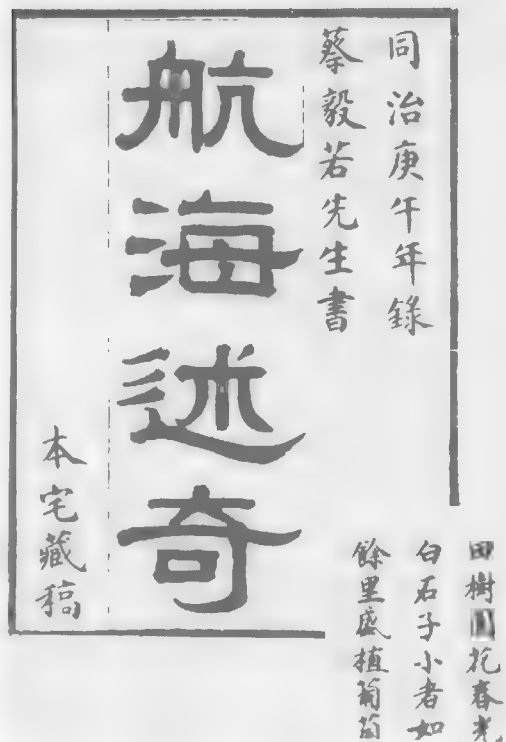 同治庚午年錄
蔡毅若先生書
航海述奇
本宅藏稿
樹花春光
白石子小者如
餘里盛植葡萄